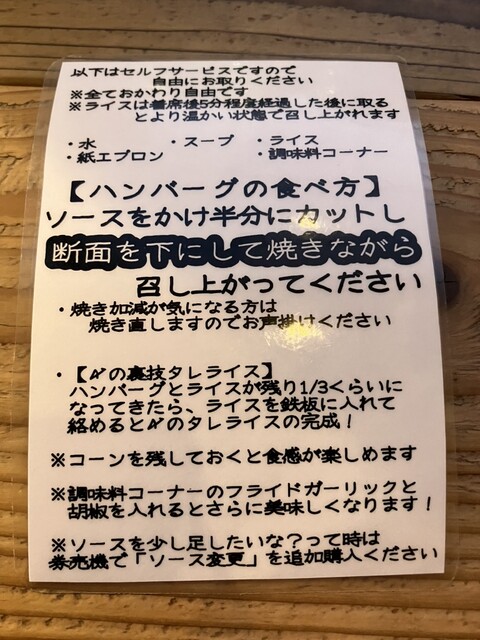 以下はセルフサービスですので
自由にお取りください
※全ておかわり自由です
※ライスは着席後5分程度経過した後に取る
とより温かい状態で召し上がれます
・水 ・スープ ・ライス
・紙エプロン ・調味料コーナー
【ハンバーグの食べ方】
ソースをかけ半分にカットし
断面を下にして焼きながら
召し上がってください
・焼き加減が気になる方は
焼き直しますのでお声掛けください
・【〆の裏技タレライス】
ハンバーグとライスが残り1/3くらいに
なってきたら、ライスを鉄板に入れて
絡めると〆のタレライスの完成！
※コーンを残しておくと食感が楽しめます
※調味料コーナーのフライドガーリックと
胡椒を入れるとさらに美味しくなります！
※ソースを少し足したいな？って時は
券売機で「ソース変更」を追加購入ください